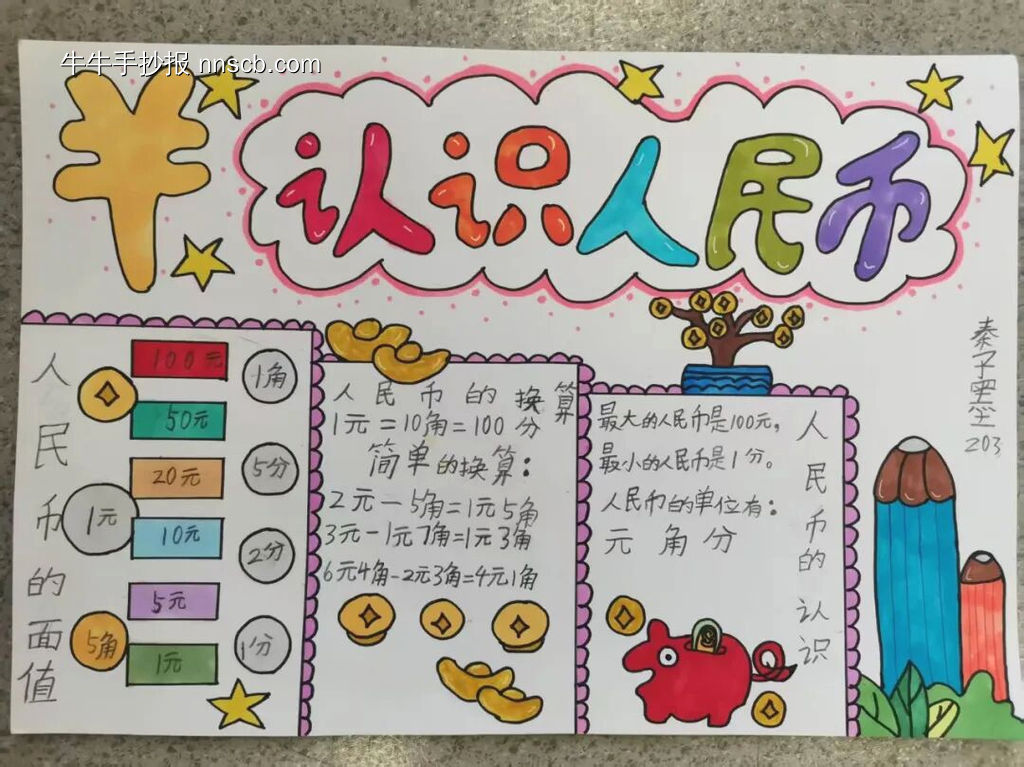 牛牛手抄报 nnscb.com
¥
认识人民币
秦子墨
203
人民币的面值
100元
50元
20元
10元
5元
1元
1元
5角
1角
5分
2分
1分
人民币的换算
1元=10角=100分
简单的换算:
2元-5角=1元5角
3元-1元7角=1元3角
6元4角-2元3角=4元1角
最大的人民币是100元,
最小的人民币是1分。
人民币的单位有:
元 角 分
人民币的认识